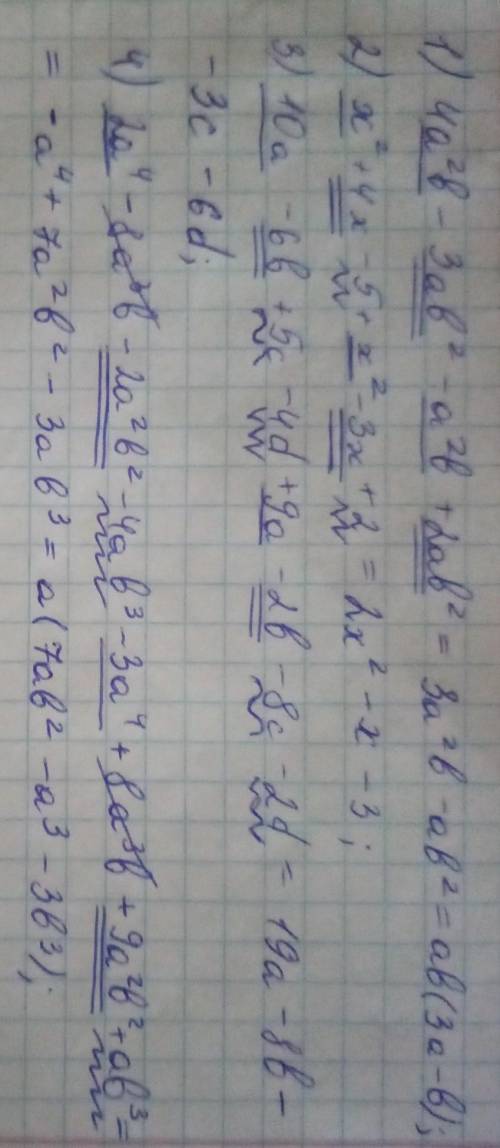 1) 4a²b - 3ab² - a²b + 2ab² = 3a²b - ab² = ab(3a - b);
2) x² + 4x - 5 + x² - 3x + 2 = 2x² - x - 3;
3) 10a - 6b + 5c - 4d + 9a - 2b - 8c - 2d = 19a - 8b -
- 3c - 6d;
4) 2a⁴ - 8a³b - 2a²b² - 4ab³ - 3a⁴ + 8a³b + 9a²b² + ab³ =
= -a⁴ + 7a²b² - 3ab³ = a(7ab² - a³ - 3b³);